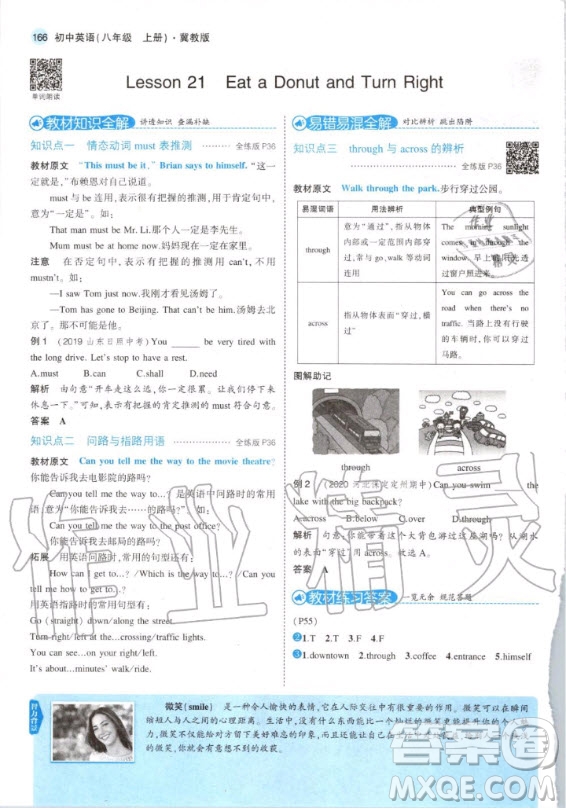 166 初中英语(八年级 上册)·冀教版
单词朗读
Lesson 21 Eat a Donut and Turn Right
教材知识全解 讲透知识 查漏补缺
知识点一 情态动词 must 表推测 全练版 P36
教材原文 "This must be it," Brian says to himself. "这一
定就是,"布赖恩对自己说道。
must 与 be 连用,表示很有把握的推测,用于肯定句中,
意为"一定是"。如:
That man must be Mr. Li.那个人一定是李先生。
Mum must be at home now.妈妈现在一定在家里。
注意 在否定句中,表示很有把握的推测用 can't,不用
mustn't。如:
—I saw Tom just now.我刚才看见汤姆了。
—Tom has gone to Beijing. That can't be him.汤姆去北
京了。那不可能是他。
例 1 (2019 山东日照中考) You ______ be very tired with
the long drive. Let's stop to have a rest.
A.must B.can C.should D.need
解析 由句意"开车走这么远,你一定非常累。让我们停下来
休息一下。"可知,此处表示很有把握的肯定推测用 must 符合句意。
答案 A
知识点二 问路与指路用语 全练版 P36
教材原文 Can you tell me the way to the movie theatre?
你能告诉我去电影院的路吗?
Can you tell me the way to...? 是英语中问路时的常用
语,意为"你能告诉我去……的路吗?"如:
Can you tell me the way to the post office?
你能告诉我去邮局的路吗?
拓展 用英语问路时,常用的句型还有:
How can I get to...? / Which is the way to...? / Can you
tell me how I can get to...?
用英语指路时的常用句型有:
Go (straight) down/along the street.
Turn right/left at the...crossing/traffic lights.
You can see...on your right/left.
It's about...minutes' walk/ride.
易错易混全解 对比辨析 跳出陷阱
知识点三 through 与 across 的辨析
全练版 P36
教材原文 Walk through the park.步行穿过公园。
易混词语 用法辨析 典型例句
through 意为"通过",指从物体内部或一定的空间内部穿过,常与 go、walk 等动词连用 The morning sunlight comes in through the window. 早上阳光透过窗户照进来。
across 指从物体表面"穿过,横过" You can go across the road when there's no traffic. 当路上没有行驶的车辆时,你们可以穿过马路。
图解助记
through across
例 2 (2020 河北保定定州期中) Can you swim ______ the
lake with the big backpack?
A.across B.below C.over D.through
解析 句意:你能带着这个大背包游过这座湖吗? 从湖水
的表面"穿过"用 across。故选 A。
答案 A
教材练习答案 一览无余 规范答题
(P55)
❷1.T 2.T 3.F 4.F
❸1.downtown 2.through 3.coffee 4.entrance 5.himself
微笑(smile) 是一种令人愉快的表情,它在人际交往中有很重要的作用。微笑可以在瞬间
缩短人与人之间的心理距离。生活中,没有什么东西能比一个灿烂的微笑
更能给人留下难忘的印象,而且还能让人
的微笑,你一定能有意想不到的收获。
作业精灵
答案圈
MXQE.COM